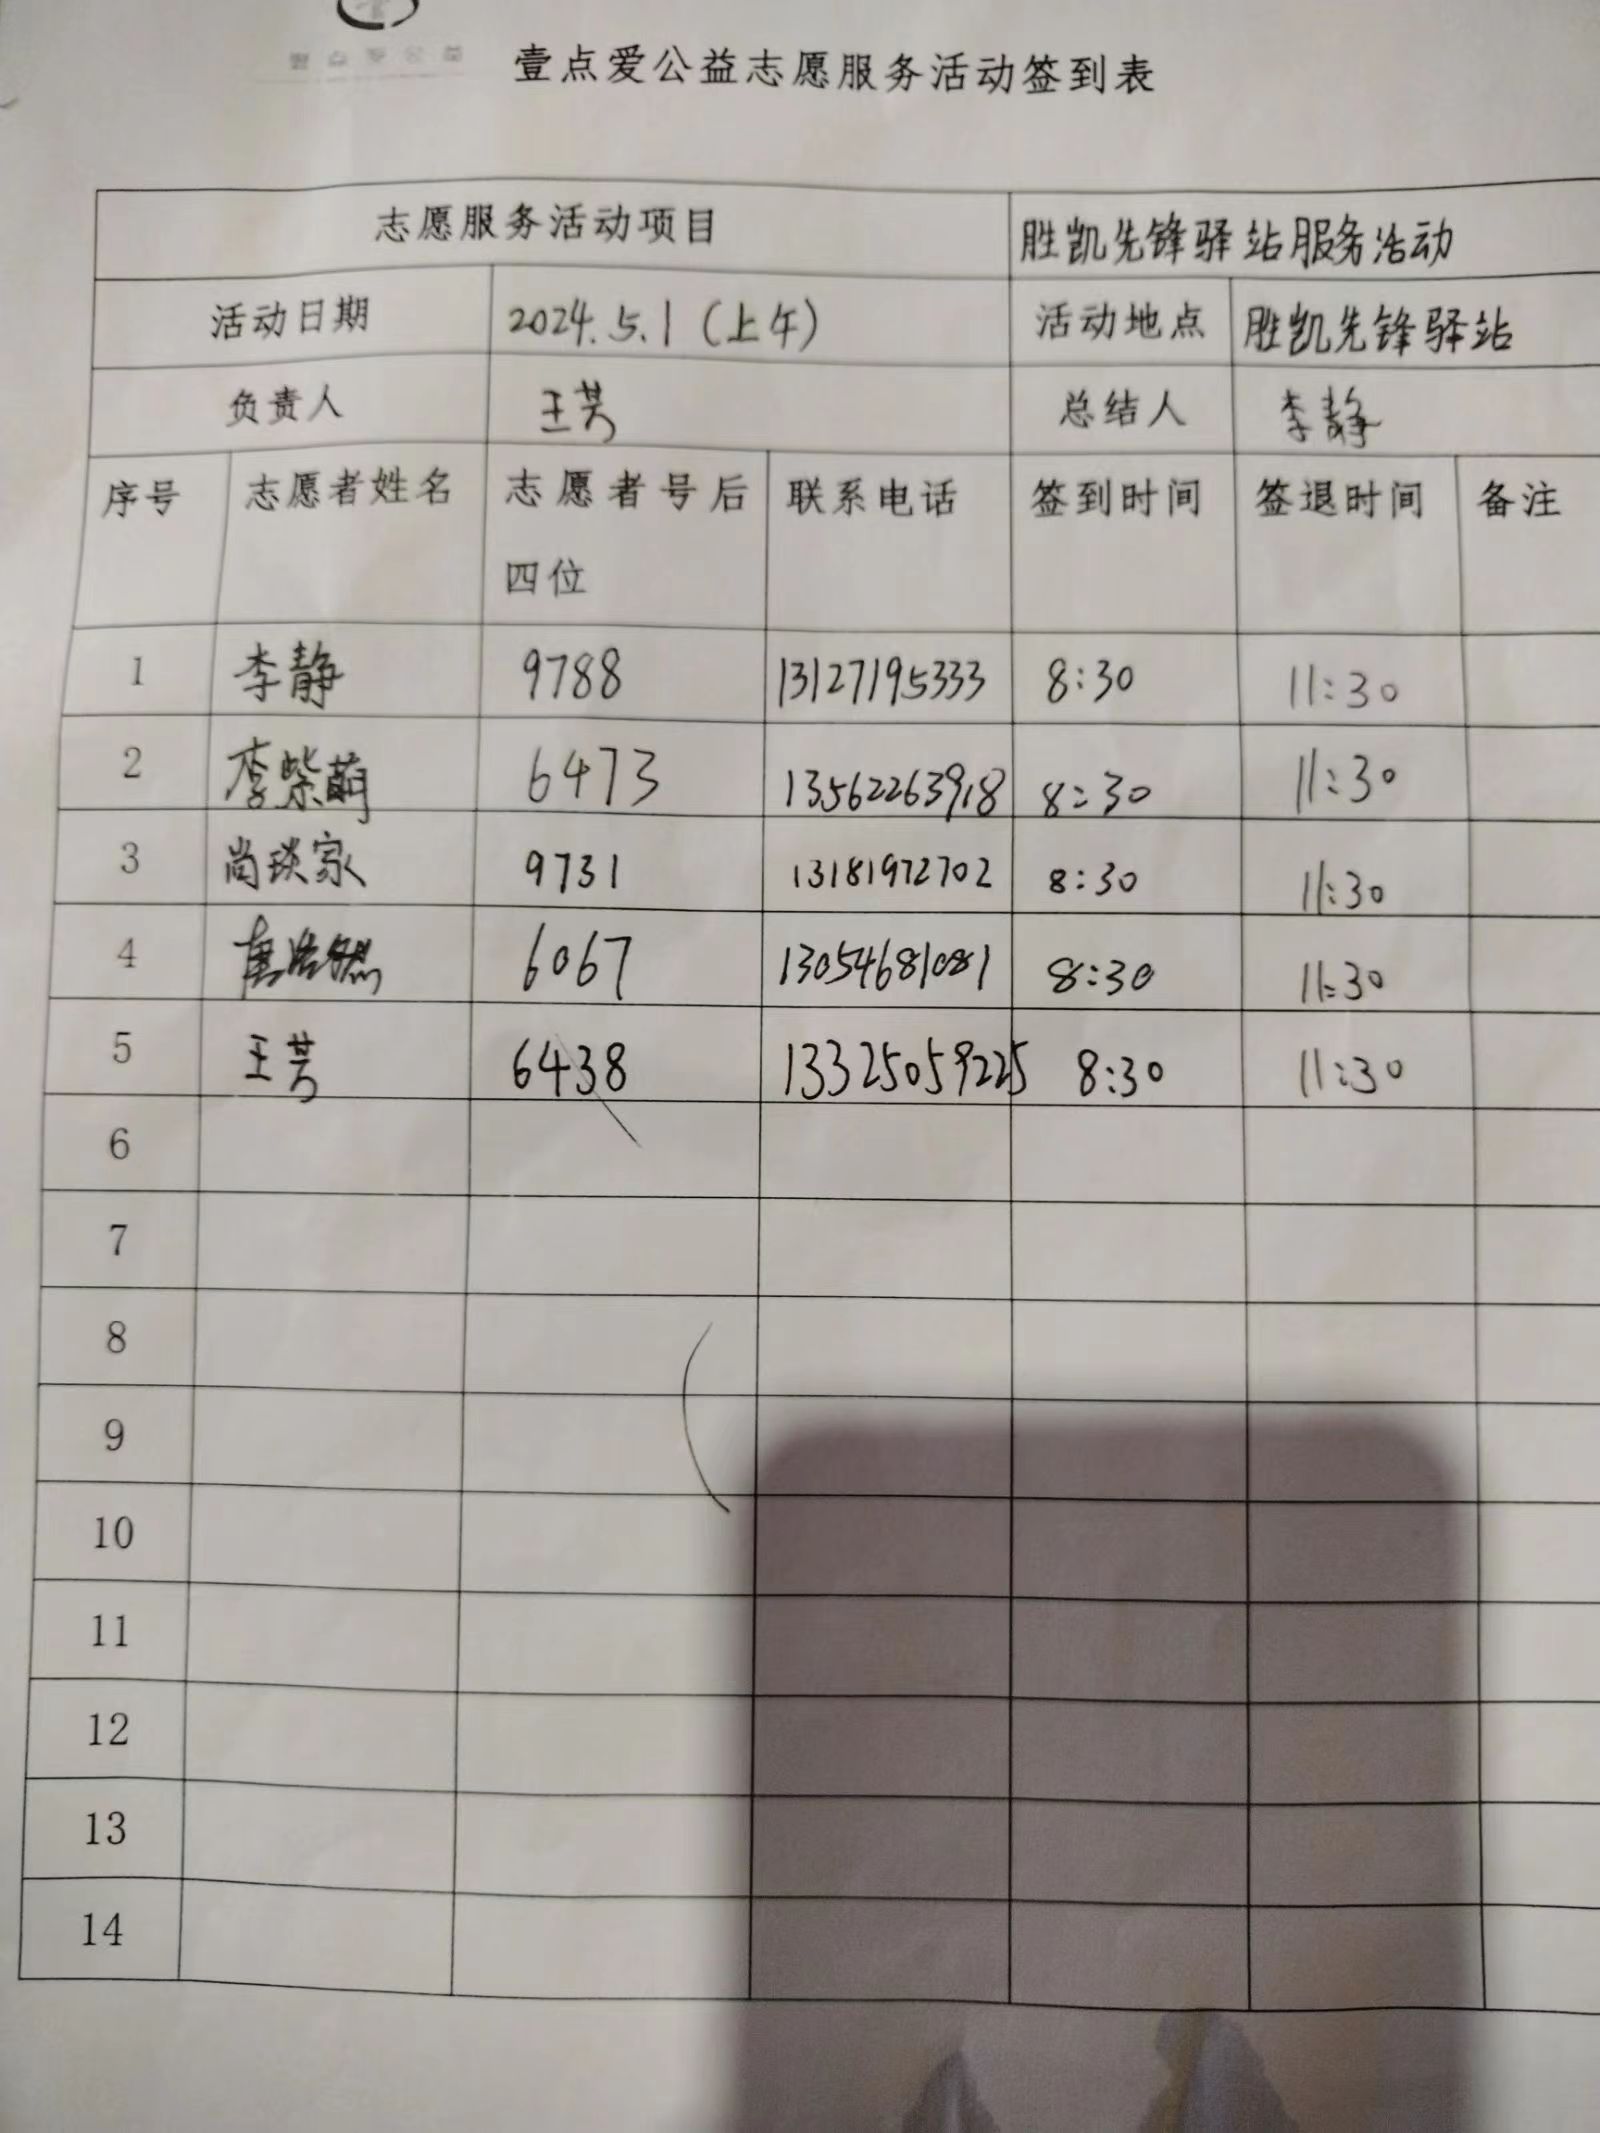 壹点爱公益
壹点爱公益志愿服务活动签到表
志愿服务活动项目 胜凯先锋驿站服务活动
活动日期 2024.5.1(上午) 活动地点 胜凯先锋驿站
负责人 王芳 总结人 李静
序号 志愿者姓名 志愿者号后 联系电话 签到时间 签退时间 备注
四位
1 李静 9788 13127195333 8:30 11:30
2 李紫萌 6473 13562263918 8:30 11:30
3 尚琰家 9731 13181972702 8:30 11:30
4 6067 13054681081 8:30 11:30
5 王芳 6438 13325059225 8:30 11:30
6
7
8
9
10
11
12
13
14